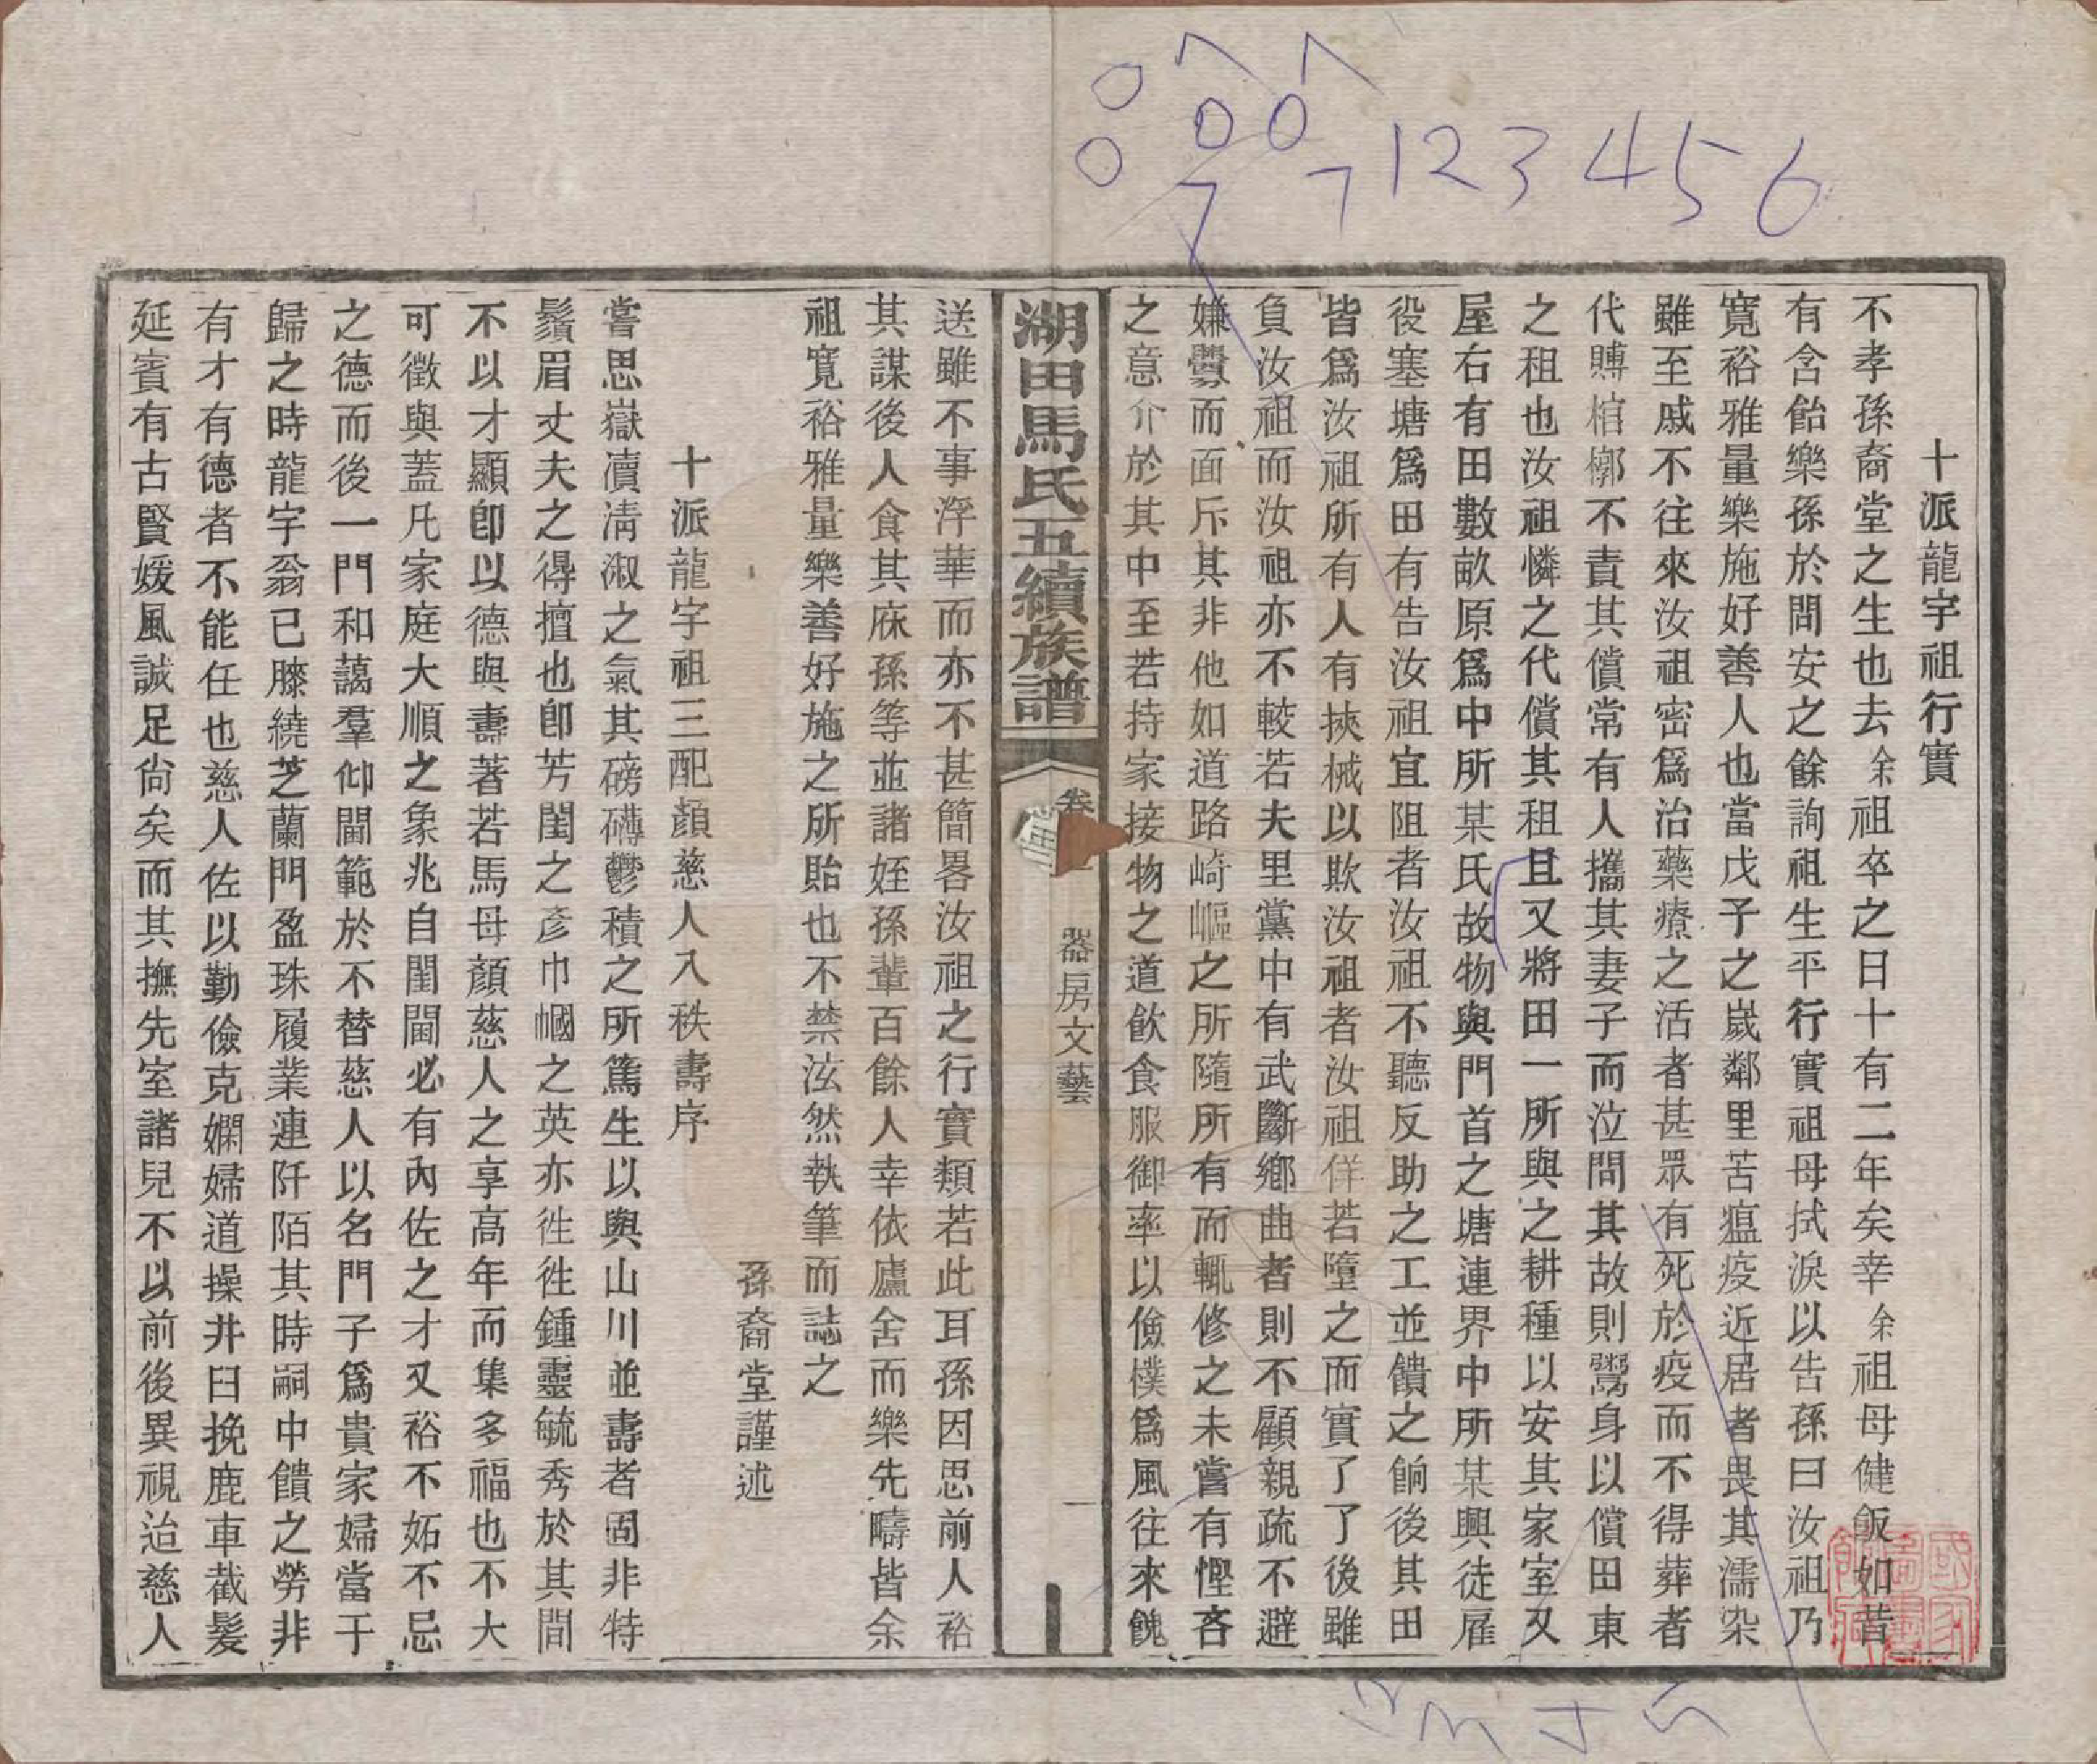 123456
7
7
十派龍宇祖行實
不孝孫裔堂之生也去余祖卒之日十有二年矣幸余祖母健飯如昔
有含飴樂孫於問安之餘詢祖生平行實祖母拭淚以告孫曰汝祖乃
寬裕雅量樂施好善人也當戊子之歲鄰里苦瘟疫近居者畏其濡染
雖至戚不往來汝祖密爲治藥療之活者甚眾有死於疫而不得葬者
代賻棺槨不責其償常有人攜其妻子而泣問其故則鬻身以償田東
之租也汝祖憐之代償其租且又將田一所與之耕種以安其家室又
屋右有田數畝原爲中所某氏故物與門首之塘連界中所某興徒雇
役塞塘爲田有告汝祖宜阻者汝祖不聽反助之工並饋之餉後其田
皆爲汝祖所有人有挾械以欺汝祖者汝祖佯若墮之而實了了後雖
負汝祖而汝祖亦不較若夫里黨中有武斷鄉曲者則不顧親疏不避
嫌釁而面斥其非他如道路崎嶇之所隨所有而輒修之未嘗有慳吝
之意介於其中至若持家接物之道飲食服御率以儉樸爲風往來餽
湖田馬氏五續族譜
卷
器房文藝
一
送雖不事浮華而亦不甚簡畧汝祖之行實類若此耳孫因思前人裕
其謀後人食其庥孫等並諸姪孫輩百餘人幸依廬舍而樂先疇皆余
祖寬裕雅量樂善好施之所貽也不禁泫然執筆而誌之
孫裔堂謹述
十派龍宇祖三配顏慈人入秩壽序
嘗思嶽瀆清淑之氣其磅礡鬱積之所篤生以與山川並壽者固非特
鬚眉丈夫之得擅也卽芳閨之彥巾幗之英亦往往鍾靈毓秀於其間
不以才顯卽以德與壽著若馬母顏慈人之享高年而集多福也不大
可徵與蓋凡家庭大順之象兆自閨閫必有內佐之才又裕不妬不忌
之德而後一門和藹羣仰閫範於不替慈人以名門子爲貴家婦當于
歸之時龍宇翁已膝繞芝蘭門盈珠履業連阡陌其時嗣中饋之勞非
有才有德者不能任也慈人佐以勤儉克嫻婦道操井臼挽鹿車截髮
延賓有古賢媛風誠足尙矣而其撫先室諸兒不以前後異視迨慈人